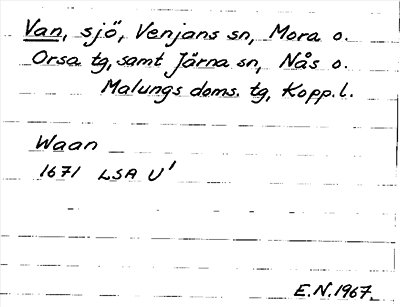 Van, sjö, Venjans sn, Mora o.
Orsa tg, samt Järna sn, Nås o.
Malungs doms. tg, Kopp. l.
Waan
1671 LSA U¹
E.N.1967.